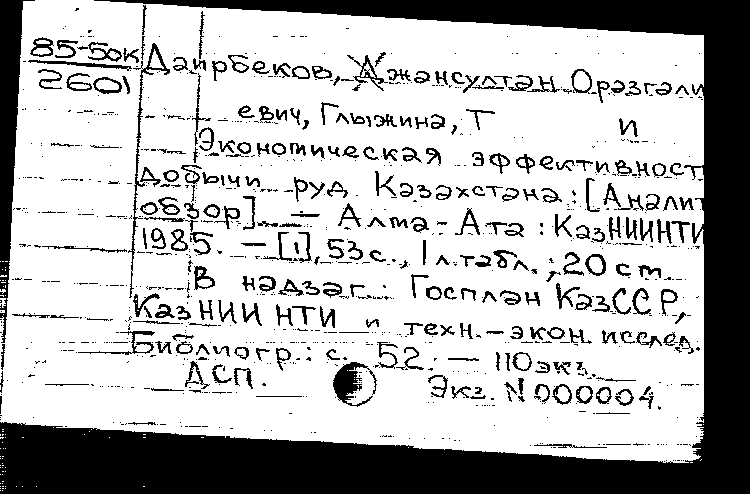 85-5ок
2601
Даирбеков, Джансултан Оразгали
евич, Глыжина, Т И
Экономическая эффективност
добычи руд Казахстана: [Аналит
обзор]. — Алма-Ата: КазНИИНТИ
1985. — [1], 53 с., 1 л. табл.; 20 cm.
В надзаг.: Госплан КазССР,
КазНИИНТИ и техн.-экон. исслед.
Библиогр.: с. 52. — 110 экз.
ДСП. Экз. N 000004.